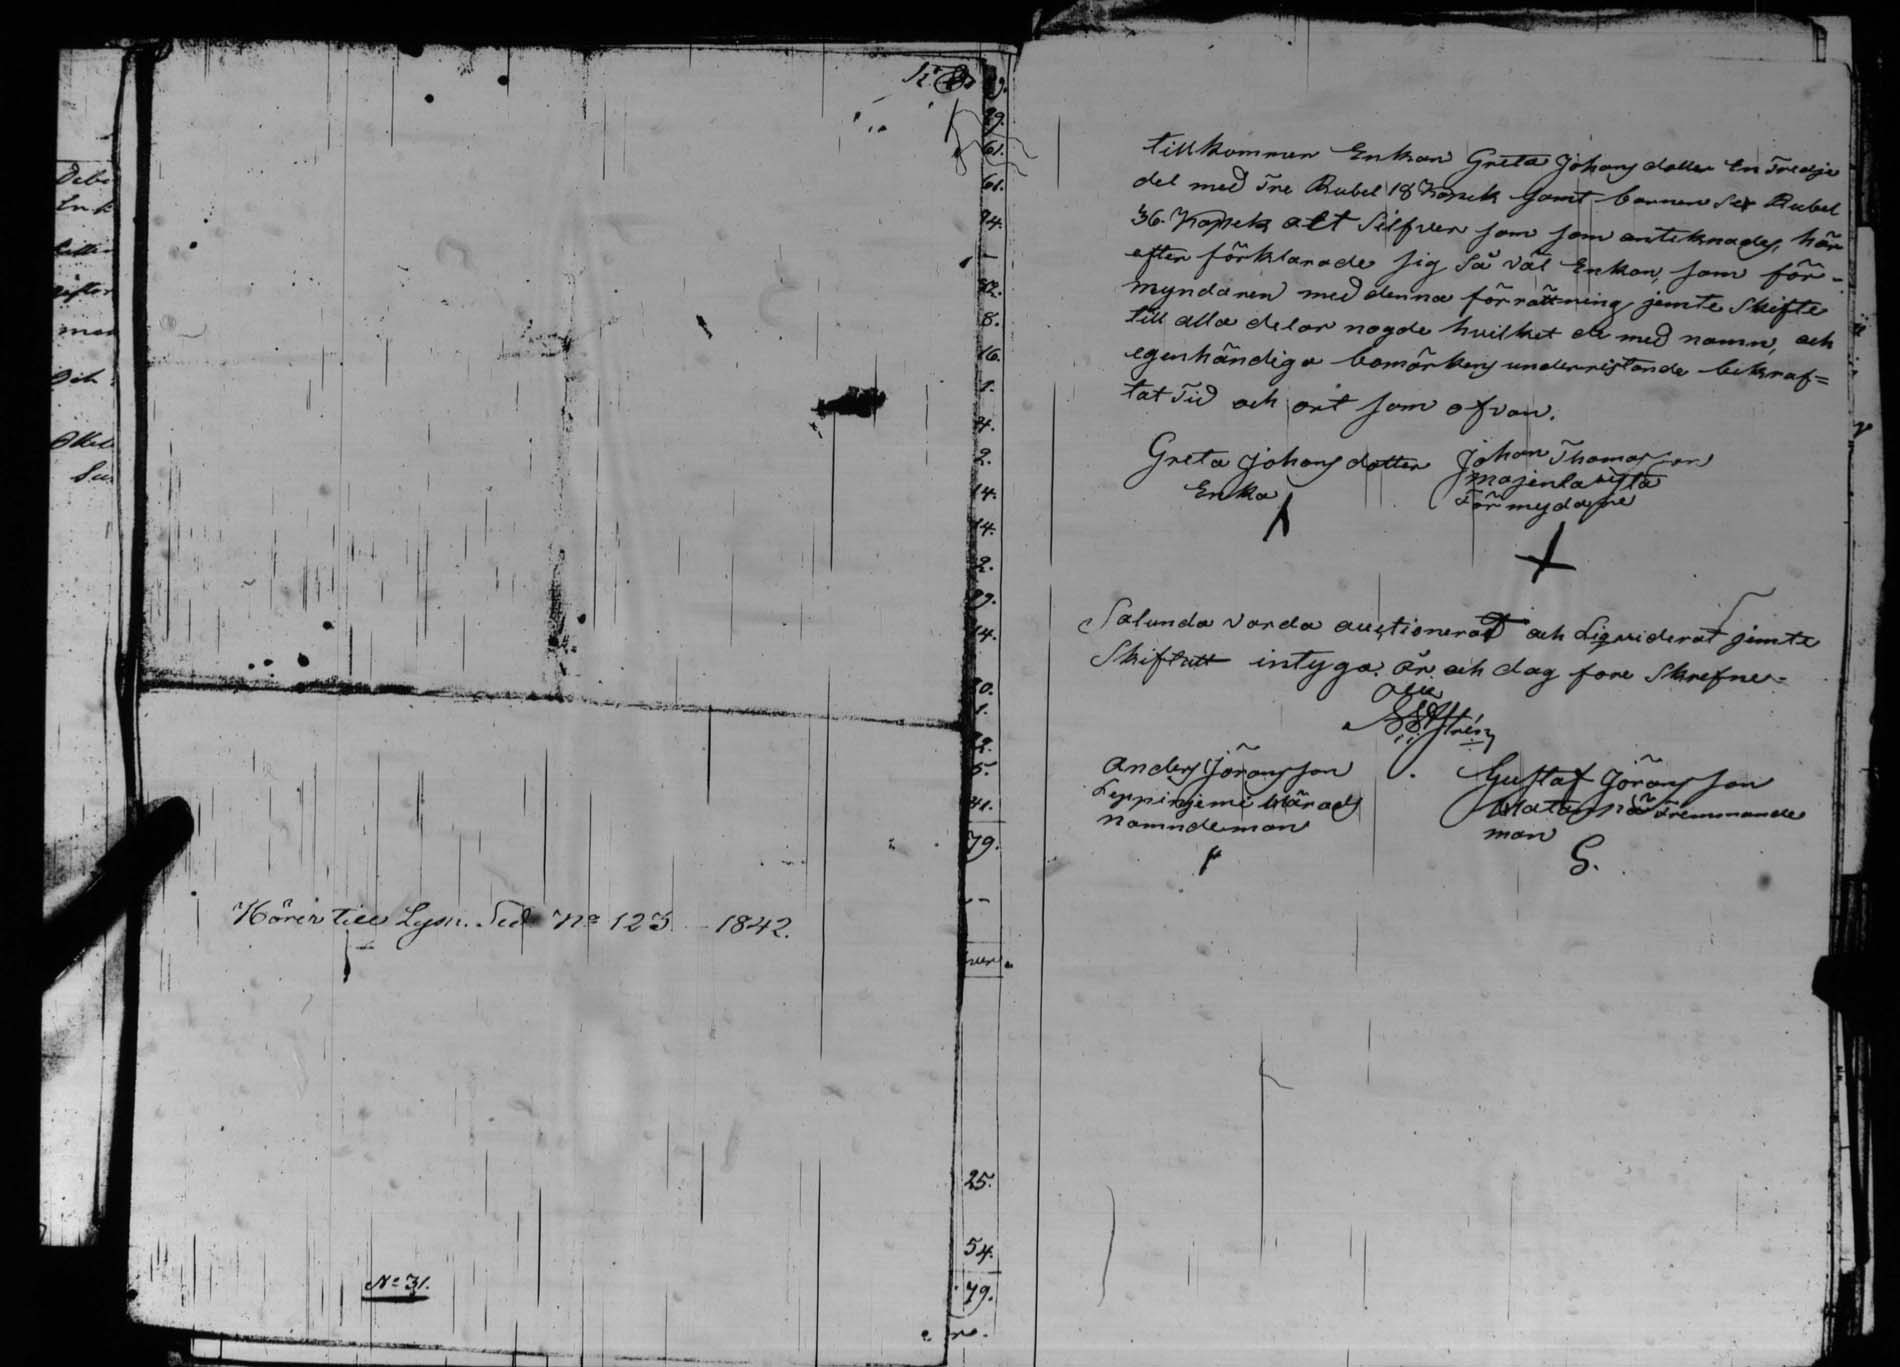 Hörer till Lysn. Sed No 123 - 1842.
No 31.
9.
29.
61.
61.
84.
52.
8.
16.
1.
4.
2.
14.
14.
2.
29.
14.
20.
1.
12.
5.
41.
79.
25.
54.
79.
tillkommer Enkan Greta Johansdotter En Tredje
del med Tre Rubel 18 Kopek samt barnen Sex Rubel
36. Kopek alt Silfver som som anteknades, här
efter förklarade sig Så väl Enkan, som för-
myndaren med denna förrättning jemte Skifte
till alla delar nögde hvilket de med namn, och
egenhändiga bomärkens underristande bekraf=
tat Tid och ort som ofvan.
Greta Johansdotter Johan Thomasson
Enka
Förmydare
Salunda varda auctionerat och Liquiderat jemte
Skiftatt intyga. År och dag fore Skrefne=
Anders Jöransson Gustaf Jöransson
Leppinjemi Härads
namndeman
man
G.